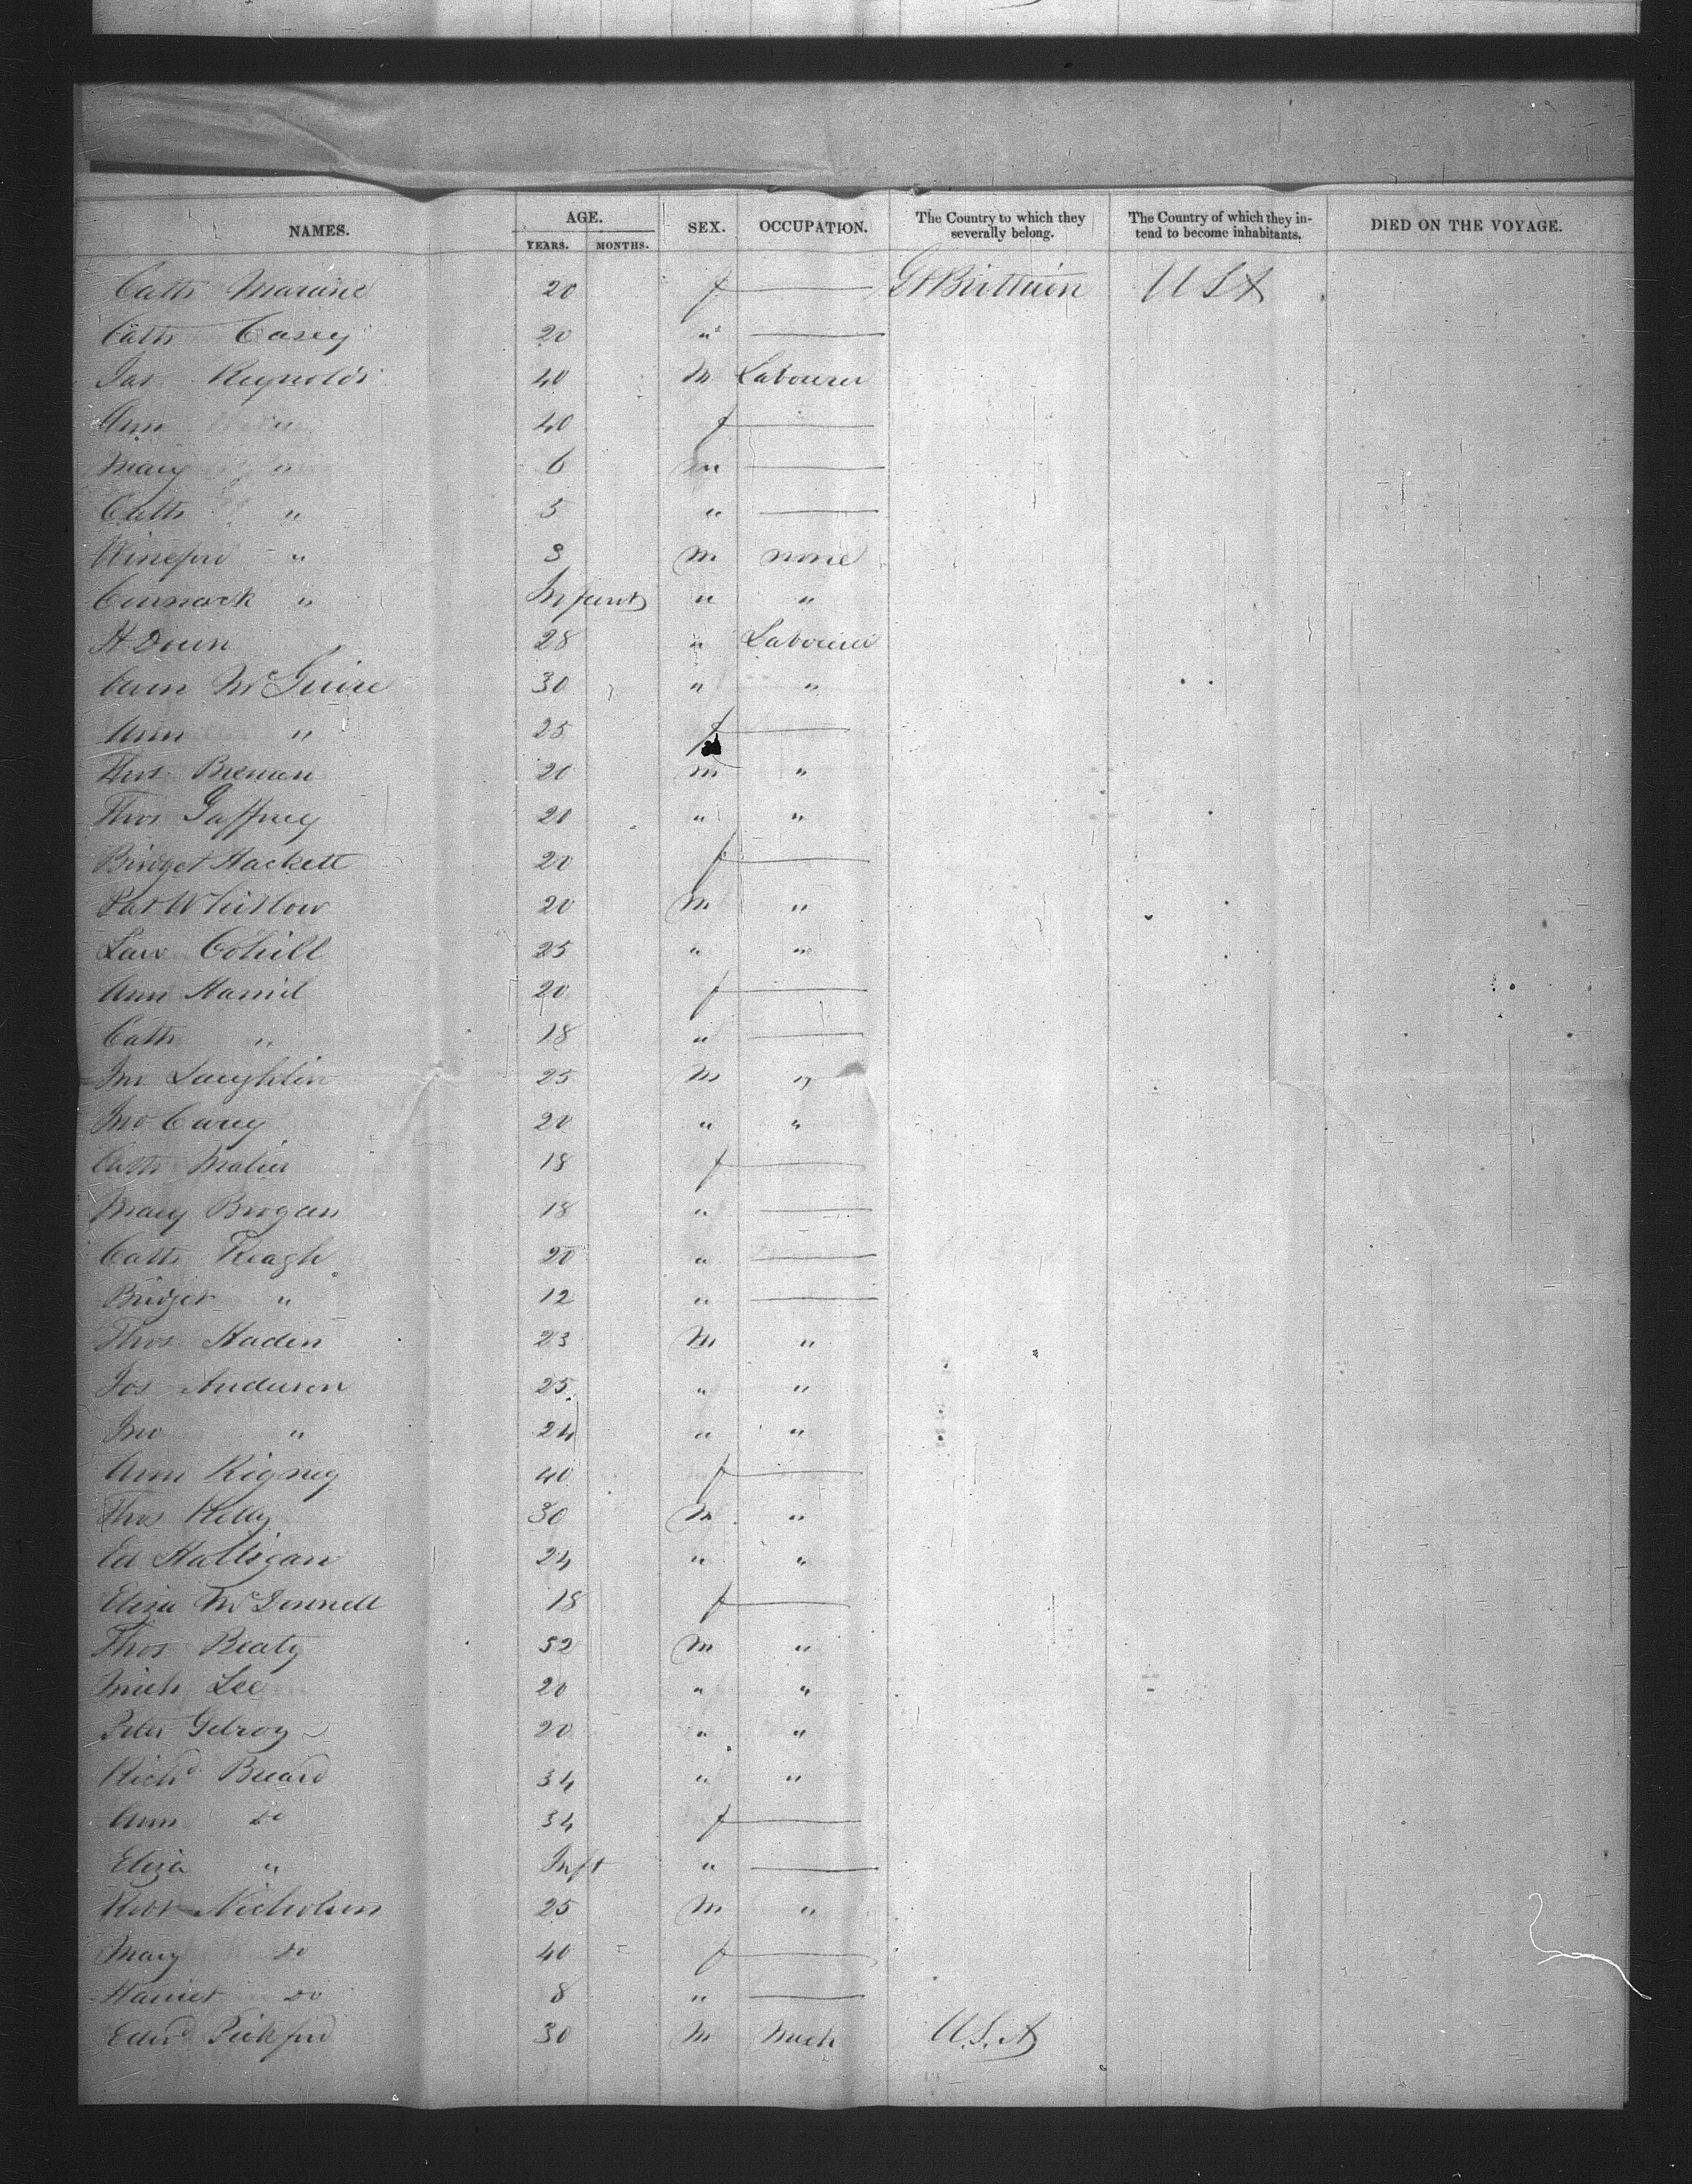 NAMES. AGE. SEX. OCCUPATION. The Country to which they severally belong. The Country of which they in- tend to become inhabitants. DIED ON THE VOYAGE.
YEARS. MONTHS.
Cath 20 f — Gt Brittain USA
Cath Casey 20 " —
Jas Reynolds 40 M Labourer
Ann " 40 f —
Mary " 6 m —
Cath " 5 " —
Wineford " 3 m none
Connack " Infant " "
28 " Labourer
McGuire 30 " "
Ann " 25 f —
Thos Brenan 20 m "
Thos Gaffney 20 " "
Bridget Hackett 20 f —
Pat Whitlow 20 M "
Law Cohill 25 " "
Ann 20 f —
Cath " 18 " —
Jno Laughlin 25 M "
Jno Carey 20 " "
Cath 18 f —
Mary Brogan 18 " —
Cath Keagh 20 " —
Bridget " 12 " —
Thos Haden 23 M "
Jos Anderson 25 " "
Jno " 24 " "
Ann Rigney 40 f —
Thos Kelly 30 M "
Ed Halligan 24 " "
Eliza McDonnell 18 f —
Thos Beaty 52 M "
Mich Lee 20 " "
Peter Gilroy 20 " "
Richd Breard 34 " "
Ann do 34 f —
Eliza " Inft " —
Robt Nicholson 25 M "
Mary do 40 f —
Harriet do 8 " —
Edwd Pickford 30 M Mech U.S.A